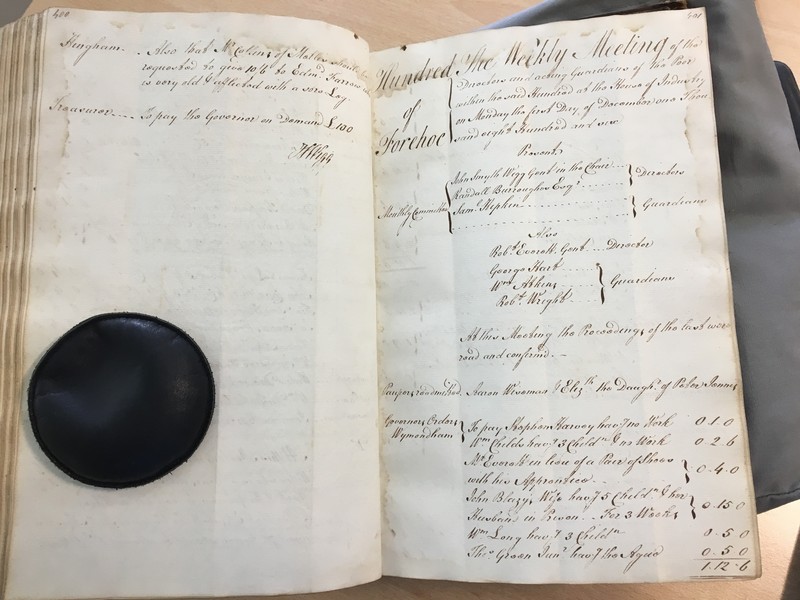 400
Hingham - Also that Mr Collins of Halles
requested to give 10/6 to Edmd Farrow
is very old & afflicted with a sore Leg
Treasurer - To pay the Governor on Demand £100
JSWigg
401
Hundred of Forehoe
The Weekly Meeting of the
Directors and acting Guardians of the Poor
within the said Hundred at the House of Industry
on Monday the first Day of December one Thou
sand eight Hundred and
Present
Monthly Committee
John Smyth Wigg Gent in the Chair
Randall Burroughes Esqr
Directors
Saml Stepkin
Guardians
Also
Robt Everett Gent Director
George Hart
Wm Atkins
Robt Wright
Guardians
At this Meeting the Proceedings of the last were
read and confirmd. -
Paupers readmitted. Aaron Wiseman & Elizth the Daughr of Peter Jonnes
Governors Orders
Wymondham
To pay Stephen Harvey havg no Work 0.1.0
Wm Childs havg 3 Childn & no Work 0.2.6
Mr Everett in lieu of a Pair of Shoes
with his Apprentice 0.4.0
John Blazy's Wife havg 5 Childn & her
Husband in Prison - For 3 Weeks 0.15.0
Wm Long havg 3 Childn 0.5.0
Thos Green Junr havg the Ague 0.5.0
1.12.6